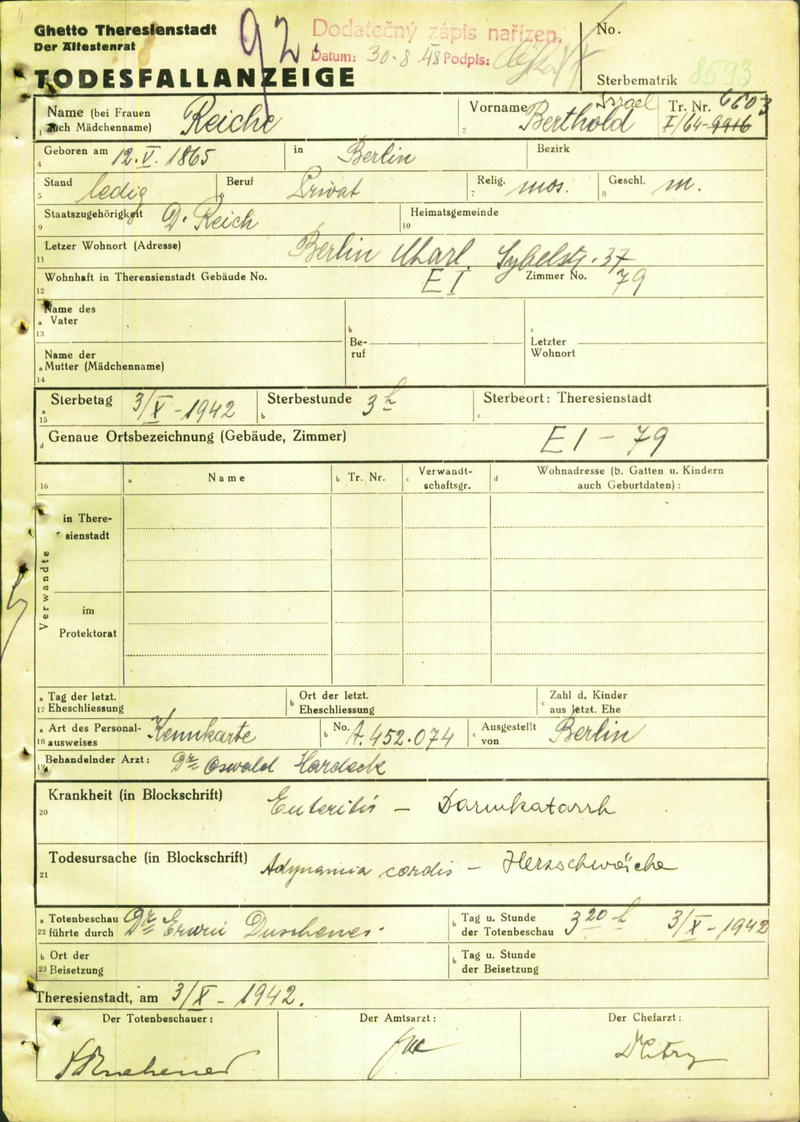 Ghetto Theresienstadt
Der Ältestenrat
TODESFALLANZEIGE
92.
Dodatečný zápis nařízen.
Datum: 30-8 48 Podpis:
No.
Sterbematrik 8593
1 Name (bei Frauen auch Mädchenname) Reiche
2 Vorname Israel Berthold
3 Tr. Nr. 6603 I/64-9916
4 Geboren am 12.V. 1865 in Berlin Bezirk
5 Stand ledig 6 Beruf Privat 7 Relig. mos. 8 Geschl. m.
9 Staatszugehörigkeit D. Reich 10 Heimatsgemeinde
11 Letzer Wohnort (Adresse) Berlin Charl. Sybelstr. 37
12 Wohnhaft in Theresienstadt Gebäude No. E I Zimmer No. 79
13 a Name des Vater b Beruf c Letzter Wohnort
14 a Name der Mutter (Mädchenname)
15 a Sterbetag 3/X - 1942 b Sterbestunde 3 h c Sterbeort: Theresienstadt
d Genaue Ortsbezeichnung (Gebäude, Zimmer) E I - 79
16 a Name b Tr. Nr. c Verwandt-schaftsgr. d Wohnadresse (b. Gatten u. Kindern auch Geburtdaten):
Verwandte
in There-sienstadt
im Protektorat
17 a Tag der letzt. Eheschliessung b Ort der letzt. Eheschliessung c Zahl d. Kinder aus letzt. Ehe
18 a Art des Personal-ausweises Kennkarte b No. A.452.074 c Ausgestellt von Berlin
19 Behandelnder Arzt: Dr Oswald Hardeck
20 Krankheit (in Blockschrift) Enteritis - Darmkatarrh
21 Todesursache (in Blockschrift) Adynamia cordis - Herzschwäche
22 a Totenbeschau führte durch Dr Erwin Duschenes b Tag u. Stunde der Totenbeschau 3 20 h 3/X - 1942
23 b Ort der Beisetzung b Tag u. Stunde der Beisetzung
Theresienstadt, am 3/X - 1942.
Der Totenbeschauer: Der Amtsarzt: Der Chefarzt: